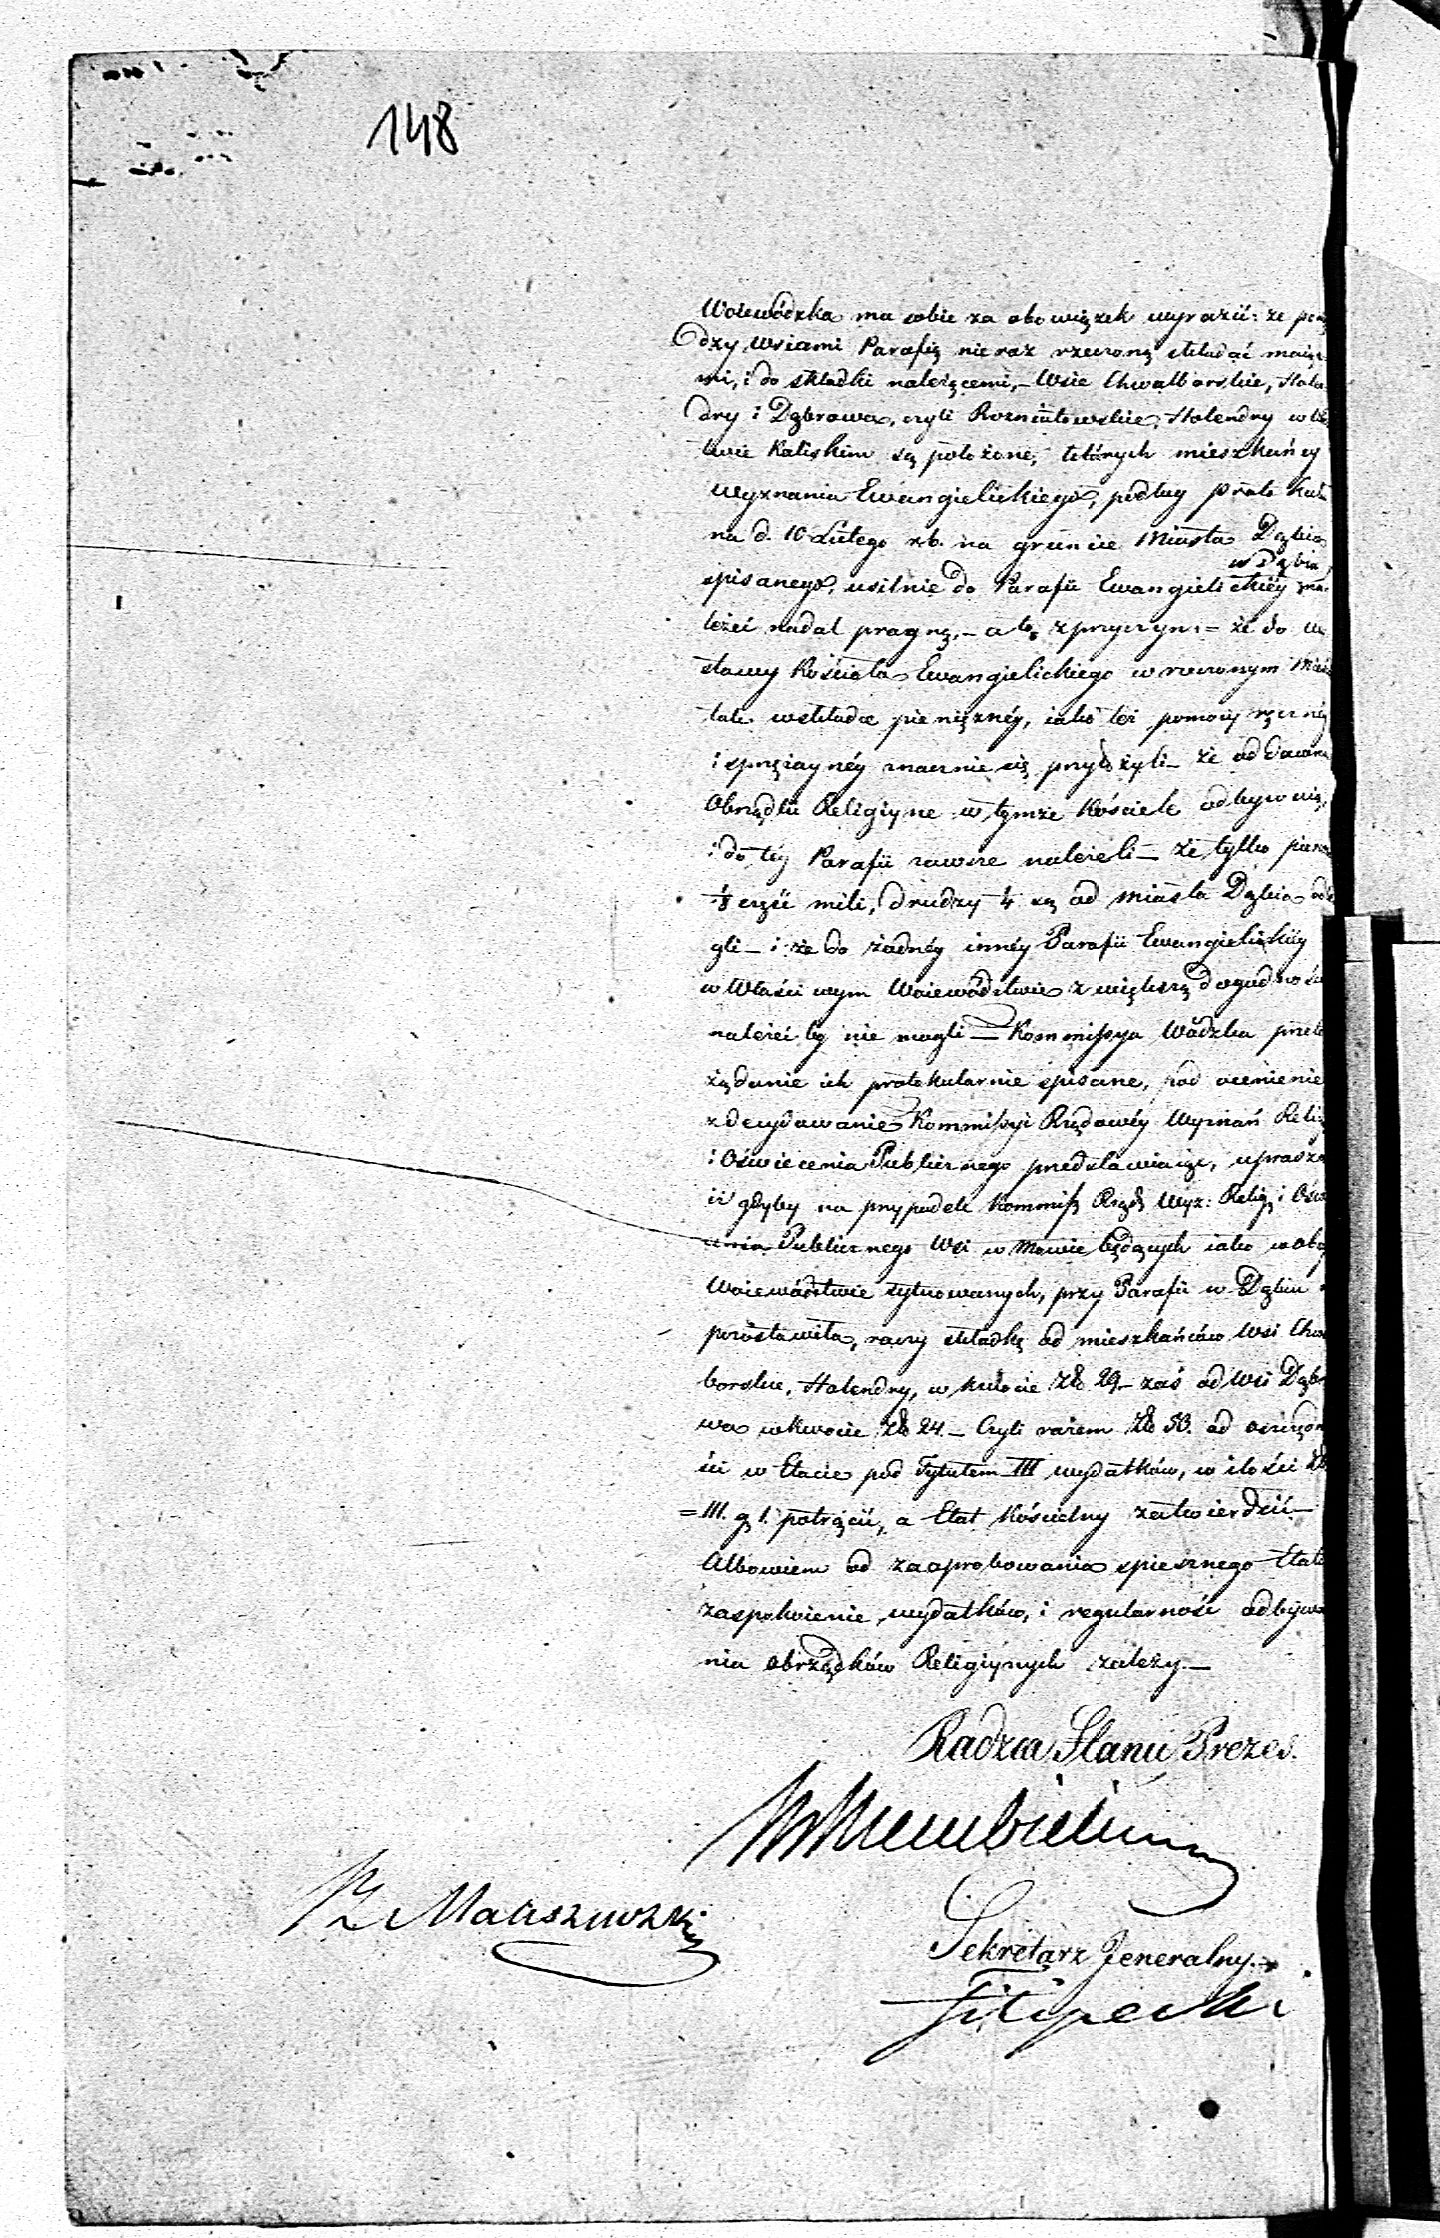 148
Woiewódzka ma sobie za obowiązek wyrazić: że pom
dzy wsiami Parafią nieraz rzeczoną składać maiąc
mi, i do składki należącemi, – Wsie Chwalborskie, Hola
dry i Dąbrowa, czyli Rozniatowskie, Holendry w Wo
twie Kaliskim są położone, których mieszkańcy
wyznania Ewangielickiego, podług Protokuł
na d. 10 Lutego r.b. na gruncie Miasta Dąbia
w Dąbiu,
spisanego, usilnie do Parafii Ewangielickiéy na-
leżeć nadal pragną, – a to z przyczyn: = że do w
stawy Kościoła Ewangielickiego w rzeczonym Mieś
tak w składce pieniężnéy, iako też pomocy ręcznéy
i sprzężaynéy znacznie się przyłożyli – że od dawna
Obrządki Religiyne w tymże Kościele odbywaią,
i do téy Parafii zawsze należeli – że tylko pierw
1/8 część mili, drudzy 1/4 są od Miasta Dąbia odle
gli – i że do żadnéy innéy Parafii Ewangielickiéy
w Właściwym Woiewództwie z większą dogodnośc
należeć by nie mogli – Kommissya Wdzka prze
żądanie ich protokularnie spisane, pod ocenienie
zdecydowanie Kommissyi Rządowéy Wyznań Relig
i Oświecenia Publicznego przedstawiaiąc, uprasza
iż gdyby na przypadek Kommiss Rząd Wyz: Relig i Ośw
cenia Publicznego Wsi w mowie będących iako w ob
Woiewództwie sytuowanych, przy Parafii w Dąbiu n
pozostawiła, raczy składkę od mieszkańców Wsi Chwa
borskie, Holendry, w kwocie Zł 29 – zaś od Wsi Dąbr
wa w kwocie Zł 24. – Czyli razem Zł 53. od oszczędn
ści w Etacie pod Tytułem III wydatków, w ilości Zł
= 111. g 1. potrącić, a Etat Kościelny zatwierdzić –
Albowiem od zaaprobowania spiesznego Etatu
zaspokoienie wydatków, i regularność odbywa
nia obrządków Religiynych zależy. –
Radzca Stanu Prezes.
Sekretarz Jeneralny.
Filipecki